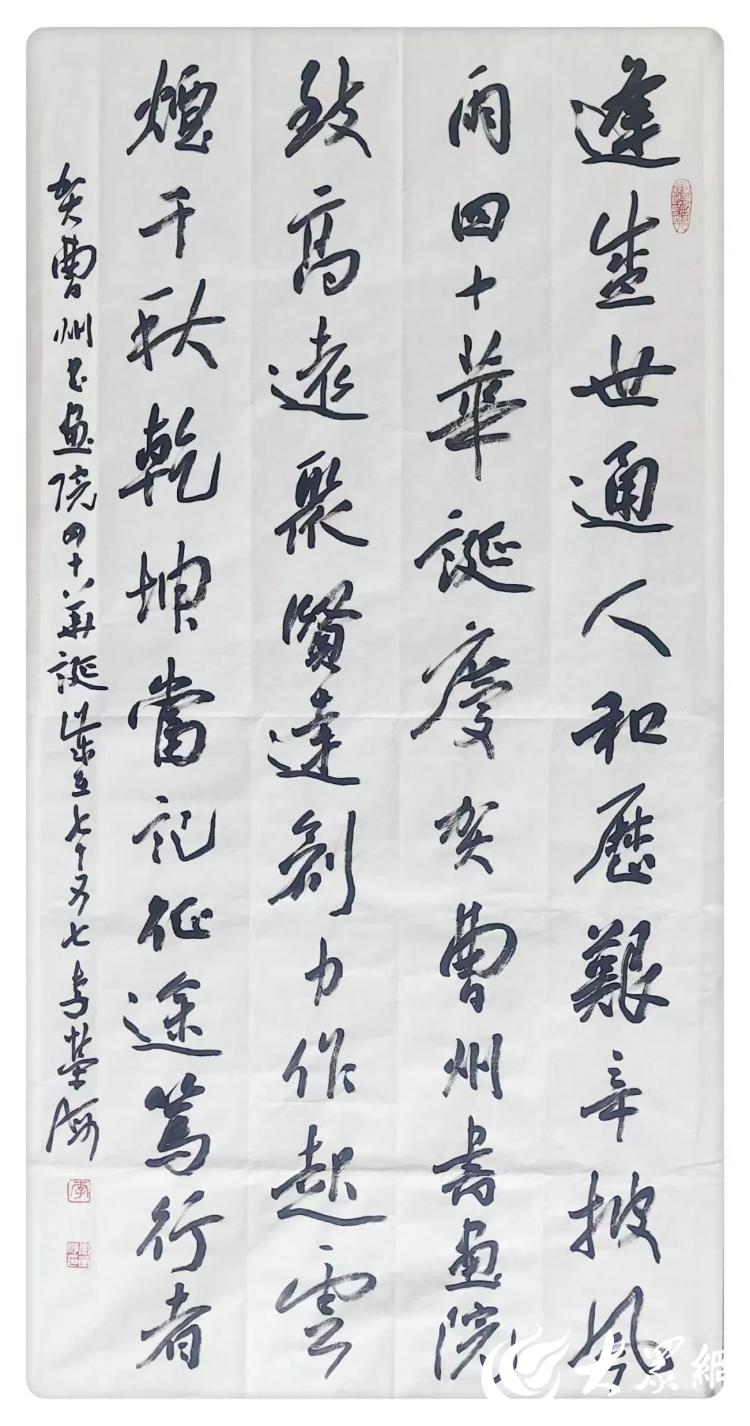 逢盛世通人和歷艱辛披風
雨四十華誕慶賀曹州書畫院
致高遠聚賢達創力作起雲
煙千秋乾坤當記征途篤行者
賀曹州書畫院四十華誕 七十又七 李榮海
李
大眾網